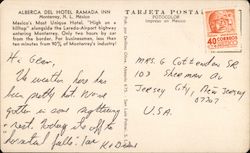 ALBERCA DEL HOTEL RAMADA INN
Monterrey, N. L. México
Mexico's Most Unique Hotel. "High on a
hilltop" alongside the Laredo-Airport highway
entering Monterrey. Only two hours by car
from the border. For businessmen, less than
ten minutes from 90% of Monterrey's industry!
Hi Gean,
The weather here has
been pretty hot. Have
gotten in some sightseeing
& rest. Today it's off to
horsetail falls!
TARJETA POSTAL
FOTOCOLOR
Impreso en México
40
CORREOS
MEXICO
MRS. G Cottenden SR
103 Sherman Av
Jersey City, New Jersey
07307
U.S.A.